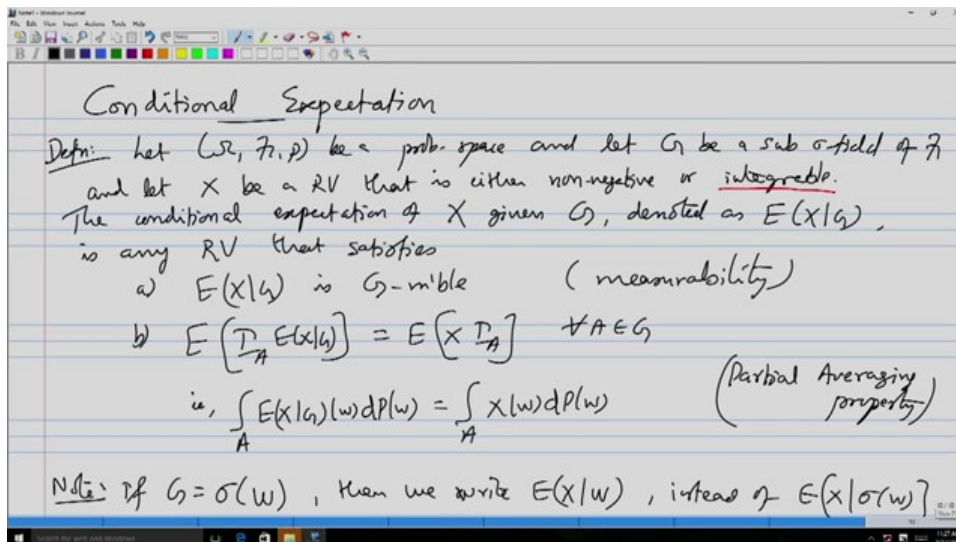 Note1 - Windows Journal
File Edit View Insert Actions Tools Help
B I
Conditional Expectation
Defn: Let (Ω, F, P) be a prob. space and let G be a sub σ-field of F
and let X be a RV that is either non-negative or integrable.
The conditional expectation of X given G, denoted as E(X|G),
is any RV that satisfies
a) E(X|G) is G-m'ble (measurability)
b) E[I_A E(X|G)] = E[X I_A] ∀A∈G
ie, ∫_A E(X|G)(w)dP(w) = ∫_A X(w)dP(w) (Partial Averaging
property)
Note: If G = σ(W), then we write E(X|W), instead of E[X|σ(W)]
10/10
Search the web and Windows
11:27 AM